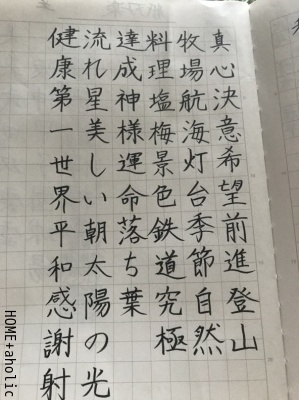 真心決意希望前進登山
牧場航海灯台季節自然
料理塩梅景色鉄道究極
達成神様運命落ち葉
流れ星美しい朝太陽の光
健康第一世界平和感謝射
HOME+aholic